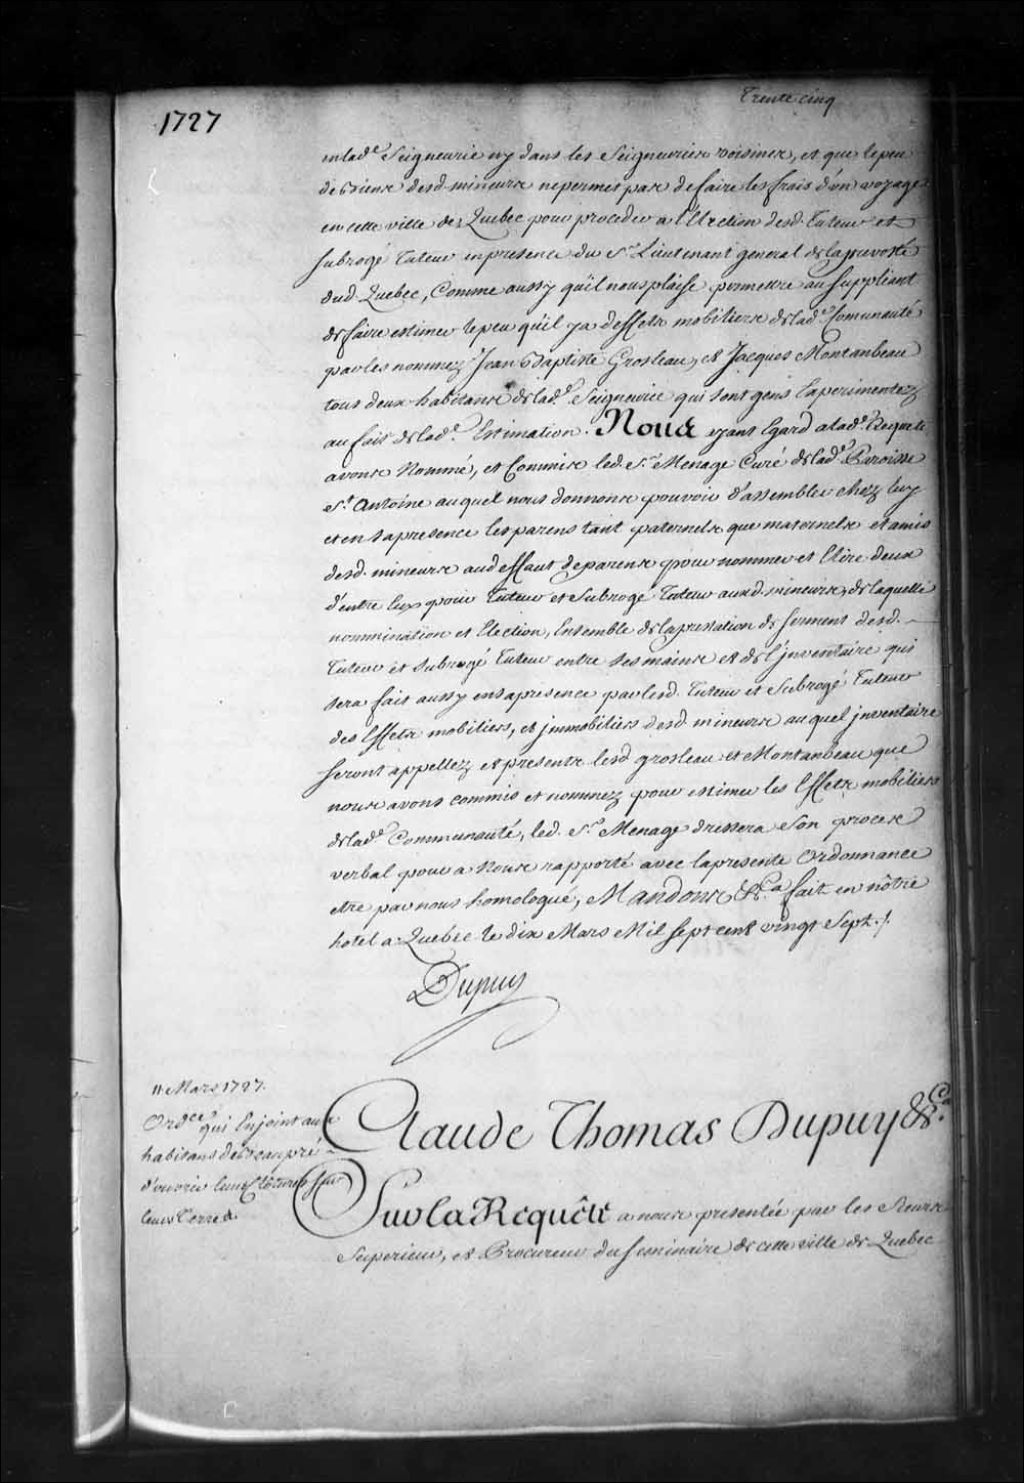 1727
Trente cinq
en lad.e Seigneurie ny dans les Seigneuries voisines, et que le peu
de Biens desd. mineurs ne permet pas de faire les frais d'un voyage
en cette ville de Quebec pour proceder a l'Election desd. Tuteur et
subrogé Tuteur en presence du S.r Lieutenant general de la prevosté
dud. Quebec, Comme aussy qu'il nous plaise permettre au suppliant
de faire estimer le peu qu'il y a d'effets mobiliers de lad.e Comunauté
par les nommez Jean Baptiste Grosleau, et Jacques Montanbeau
tous deux habitans de lad.e Seigneurie qui sont gens Experimentez
au fait de lad.e Estimation. Nous ayant Egard a lad.e Requete
avons Nommé, et Commis led. S.r Menage Curé de lad.e Paroisse
S.t Antoine auquel nous donnons pouvoir d'assembler chez luy
et en sa presence les parens tant paternels que maternels et amis
desd. mineurs aud. deffaut de parens pour nommer et Elire deux
d'entre Eux pour Tuteur et Subrogé Tuteur auxd. mineurs, de laquelle
nommination et Election, Ensemble de la prestation de serment desd.
Tuteur et subrogé Tuteur entre ses mains et de l'jnventaire qui
sera fait aussy en sa presence par lesd. Tuteur et Subrogé Tuteur
des Effets mobiliers, et jmmobiliers desd. mineurs auquel jnventaire
seront appellez et presents lesd. grosleau et Montanbeau que
nous avons commis et nommez pour estimer les Effets mobiliers
de lad.e Communauté, led. S.r Menage dressera Son proces
verbal pour a Nous rapporté avec la presente Ordonnance
etre par nous homologué, Mandons &.Ca fait en nôtre
hotel a Quebec le dix Mars Mil sept cent vingt Sept. /.
Dupuy
11. Mars 1727.
Ord.ce qui Enjoint aux
habitans de Beaupré
d'ouvrir leurs clôtures sur
leurs Terres.
Claude Thomas Dupuy &.Ca
Sur la Requête a nous presentée par les Sieurs
Superieur, et Procureur du Seminaire de cette ville de Quebec